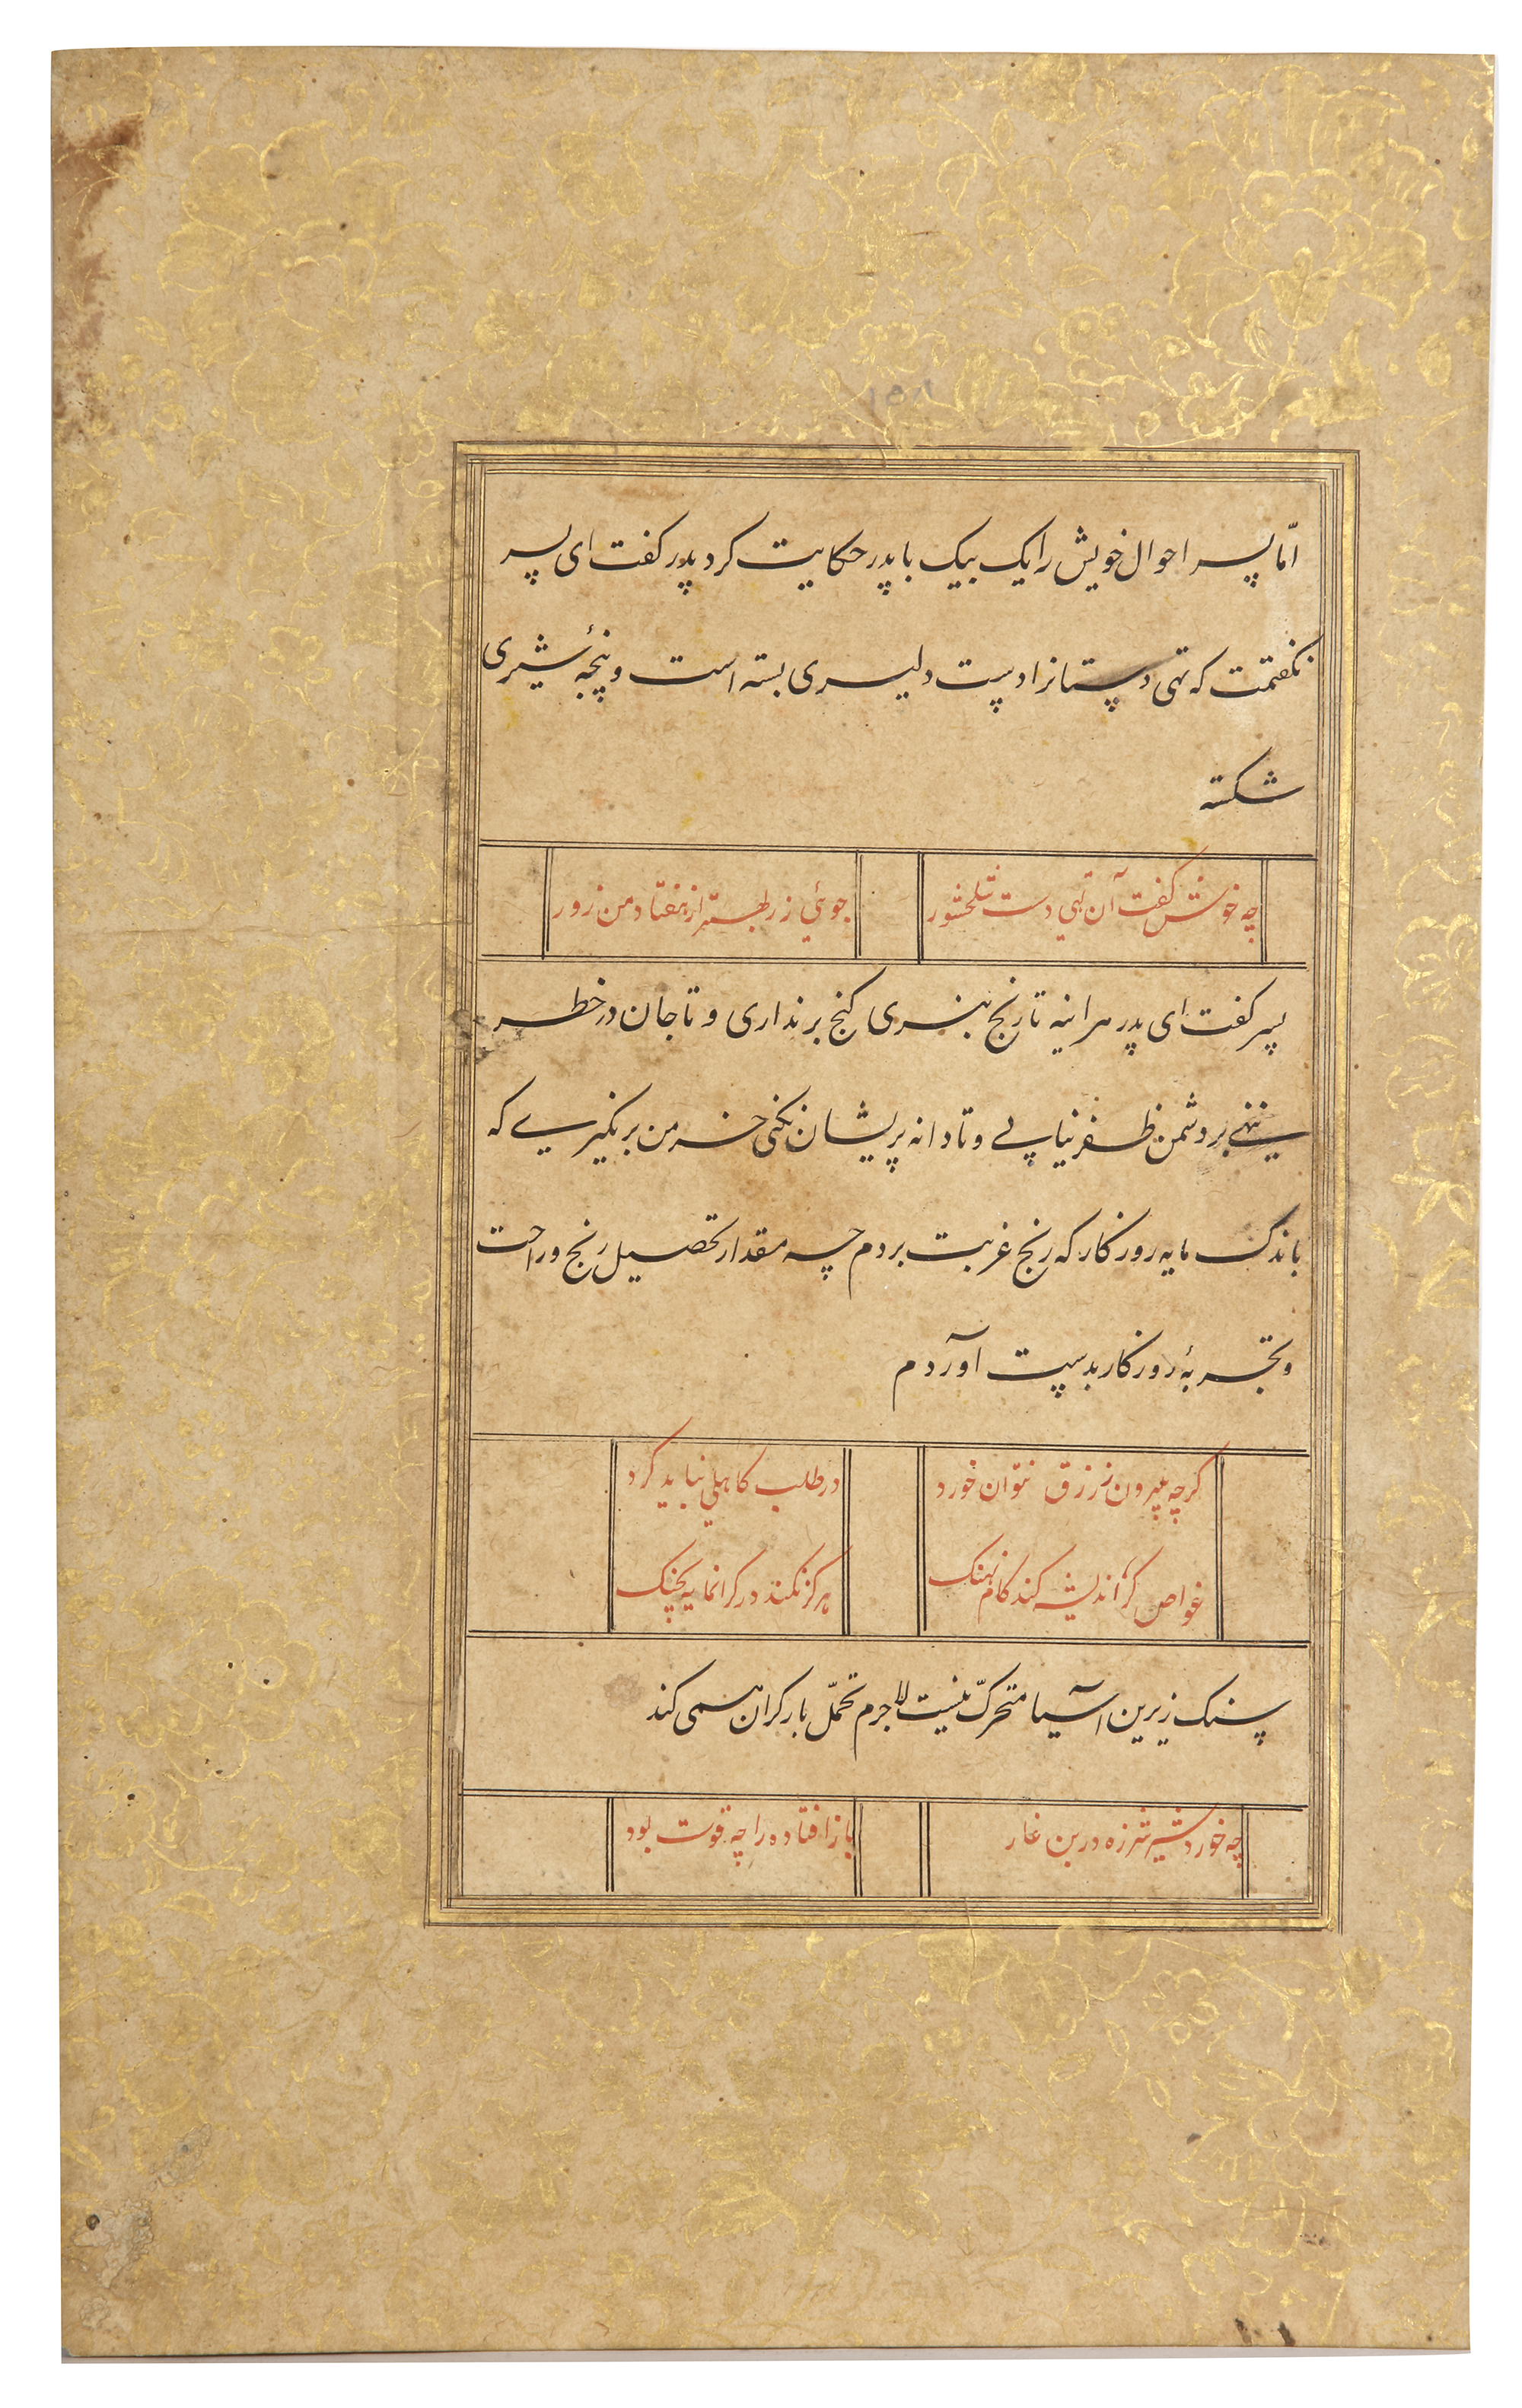 ١٥٨
امّا پسر احوال خویش را یک بیک با پدر حکایت کرد پدر کفت ای پسر
نکفتمت که تهی دستانرا دست دلیری بسته است و پنجهٔ شیری
شکسته
چه خوش کفت آن تهی دست سلحشور جوئی زر بهتر از هفتاد من زور
پسر کفت ای پدر هراینه تا رنج نبری کنج برنداری و تا جان در خطر
ننهی بر دشمن ظفر نیابی و تا دانه پریشان نکنی خرمن برنکیری که
باندک مایه روزکار که رنج غربت بردم چه مقدار تحصیل رنج و راحت
و تجربهٔ روزکار بدست آوردم
کرچه بیرون ز رزق نتوان خورد در طلب کاهلی نباید کرد
غواص کر اندیشه کند کام نهنک هرکز نکند در کرانمایه بچنک
سنک زیرین آسیا متحرّک نیست لاجرم تحمّل بار کران همی کند
چه خورد شیر شرزه در بن غار باز افتاده را چه قوت بود